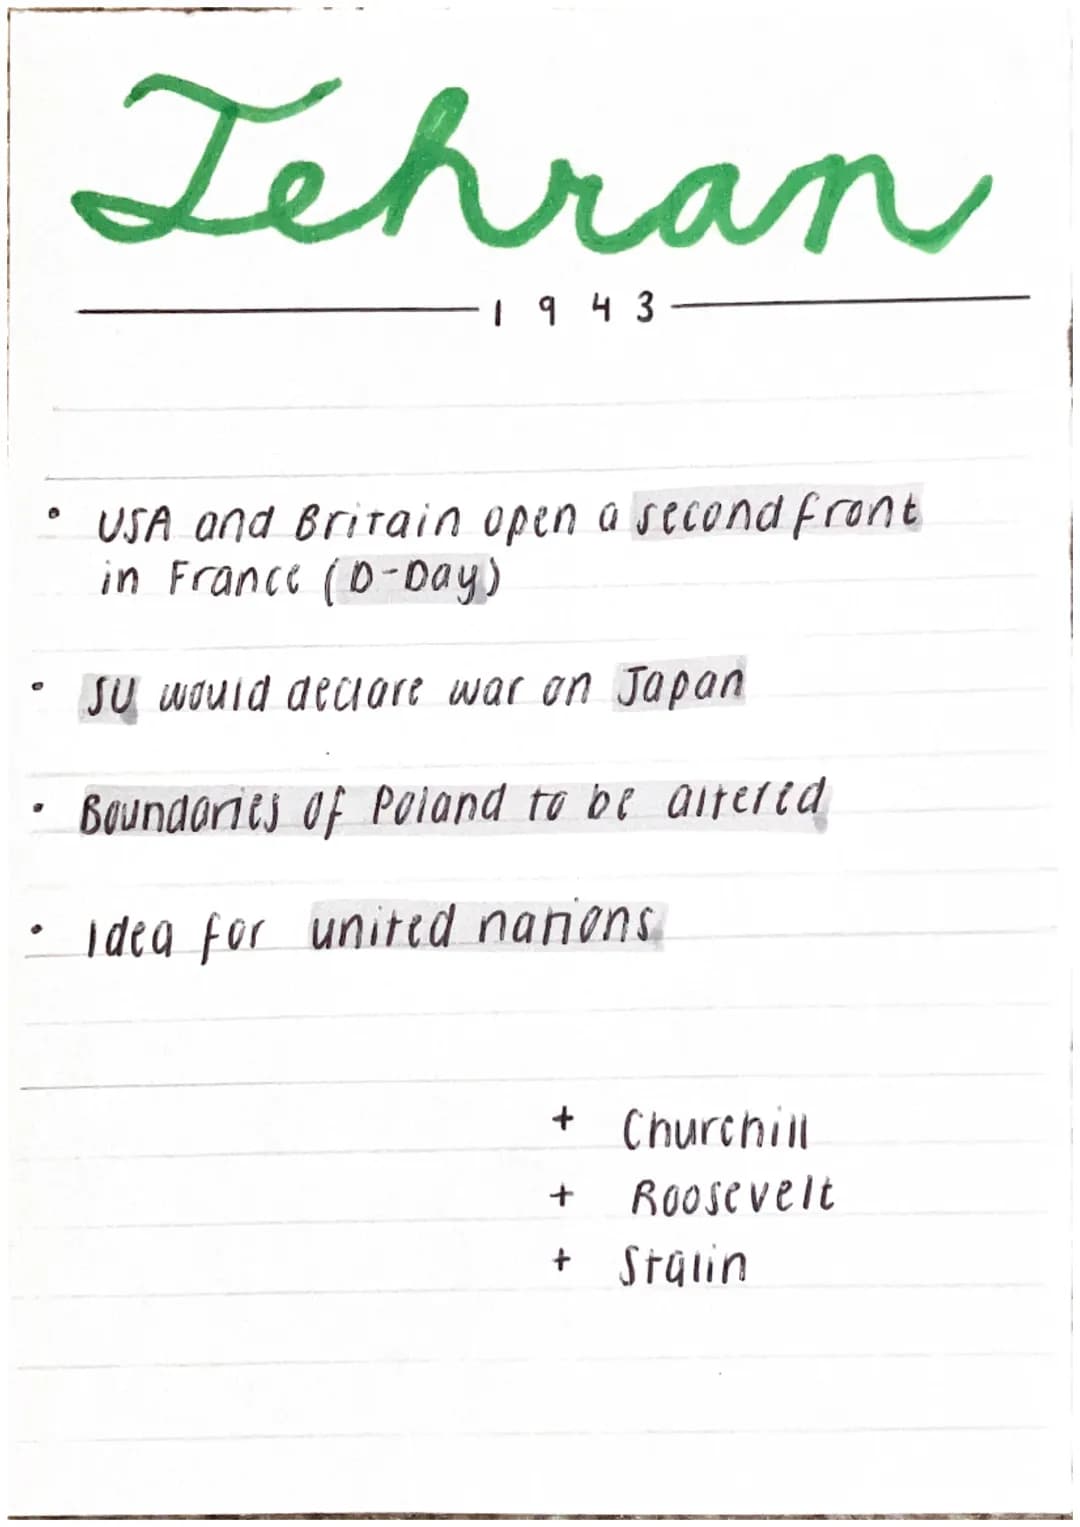 Tehran
1943
• USA and Britain open a second front
in France (D-Day)
• SU would declare war on Japan
• Boundaries of Poland to be altered
• Idea for united nations
+ Churchill
+ Roosevelt
+ Stalin